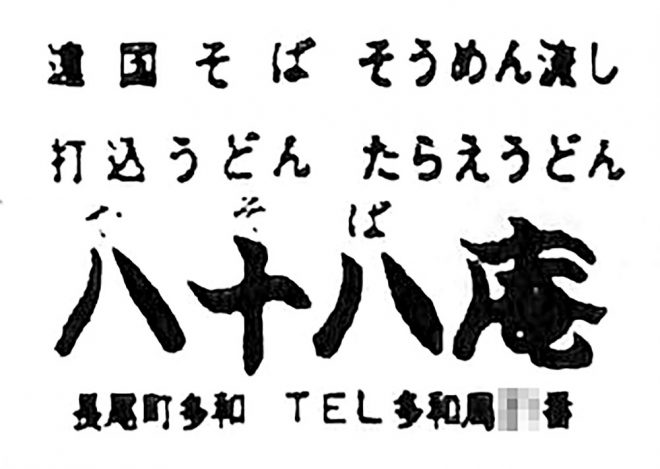 そば そうめん流し
打込うどん たらえうどん
や そ ば
八十八庵
長尾町多和 TEL多和局 番